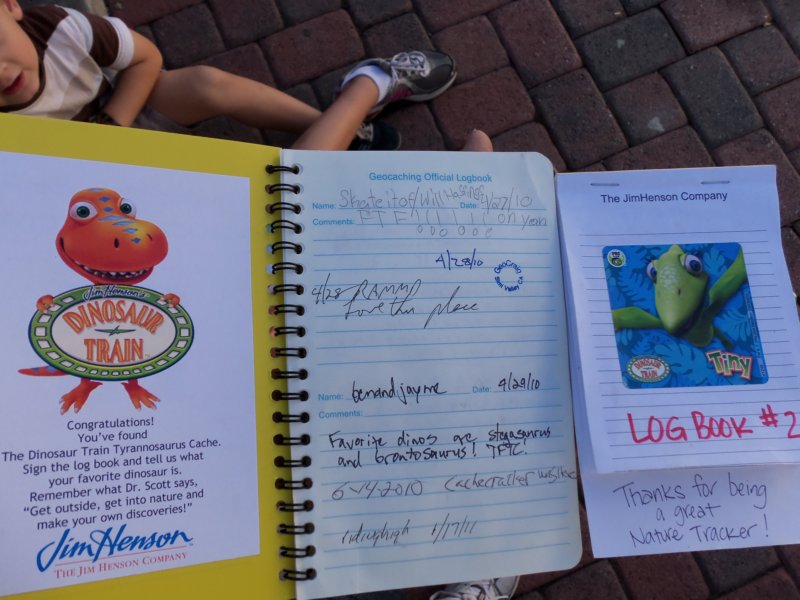 Jim Henson's
DINOSAUR
TRAIN
Congratulations!
You've found
The Dinosaur Train Tyrannosaurus Cache.
Sign the log book and tell us what
your favorite dinosaur is.
Remember what Dr. Scott says,
"Get outside, get into nature and
make your own discoveries!"
Jim Henson
THE JIM HENSON COMPANY
Geocaching Official Logbook
Name: Date: 4/27/10
Comments: FTF on
4/28/10
GeoCraig
Simi Valley CA
4/28
Love this place
Name: benandjayme Date: 4/29/10
Comments:
Favorite dinos are stegasaurus
and brontosaurus! TFTC!
6-14-2010 cachecrasher
1/17/11
The JimHenson Company
PBS KIDS
DINOSAUR
TRAIN
Tiny
LOG BOOK #2
Thanks for being
a great
Nature Tracker!